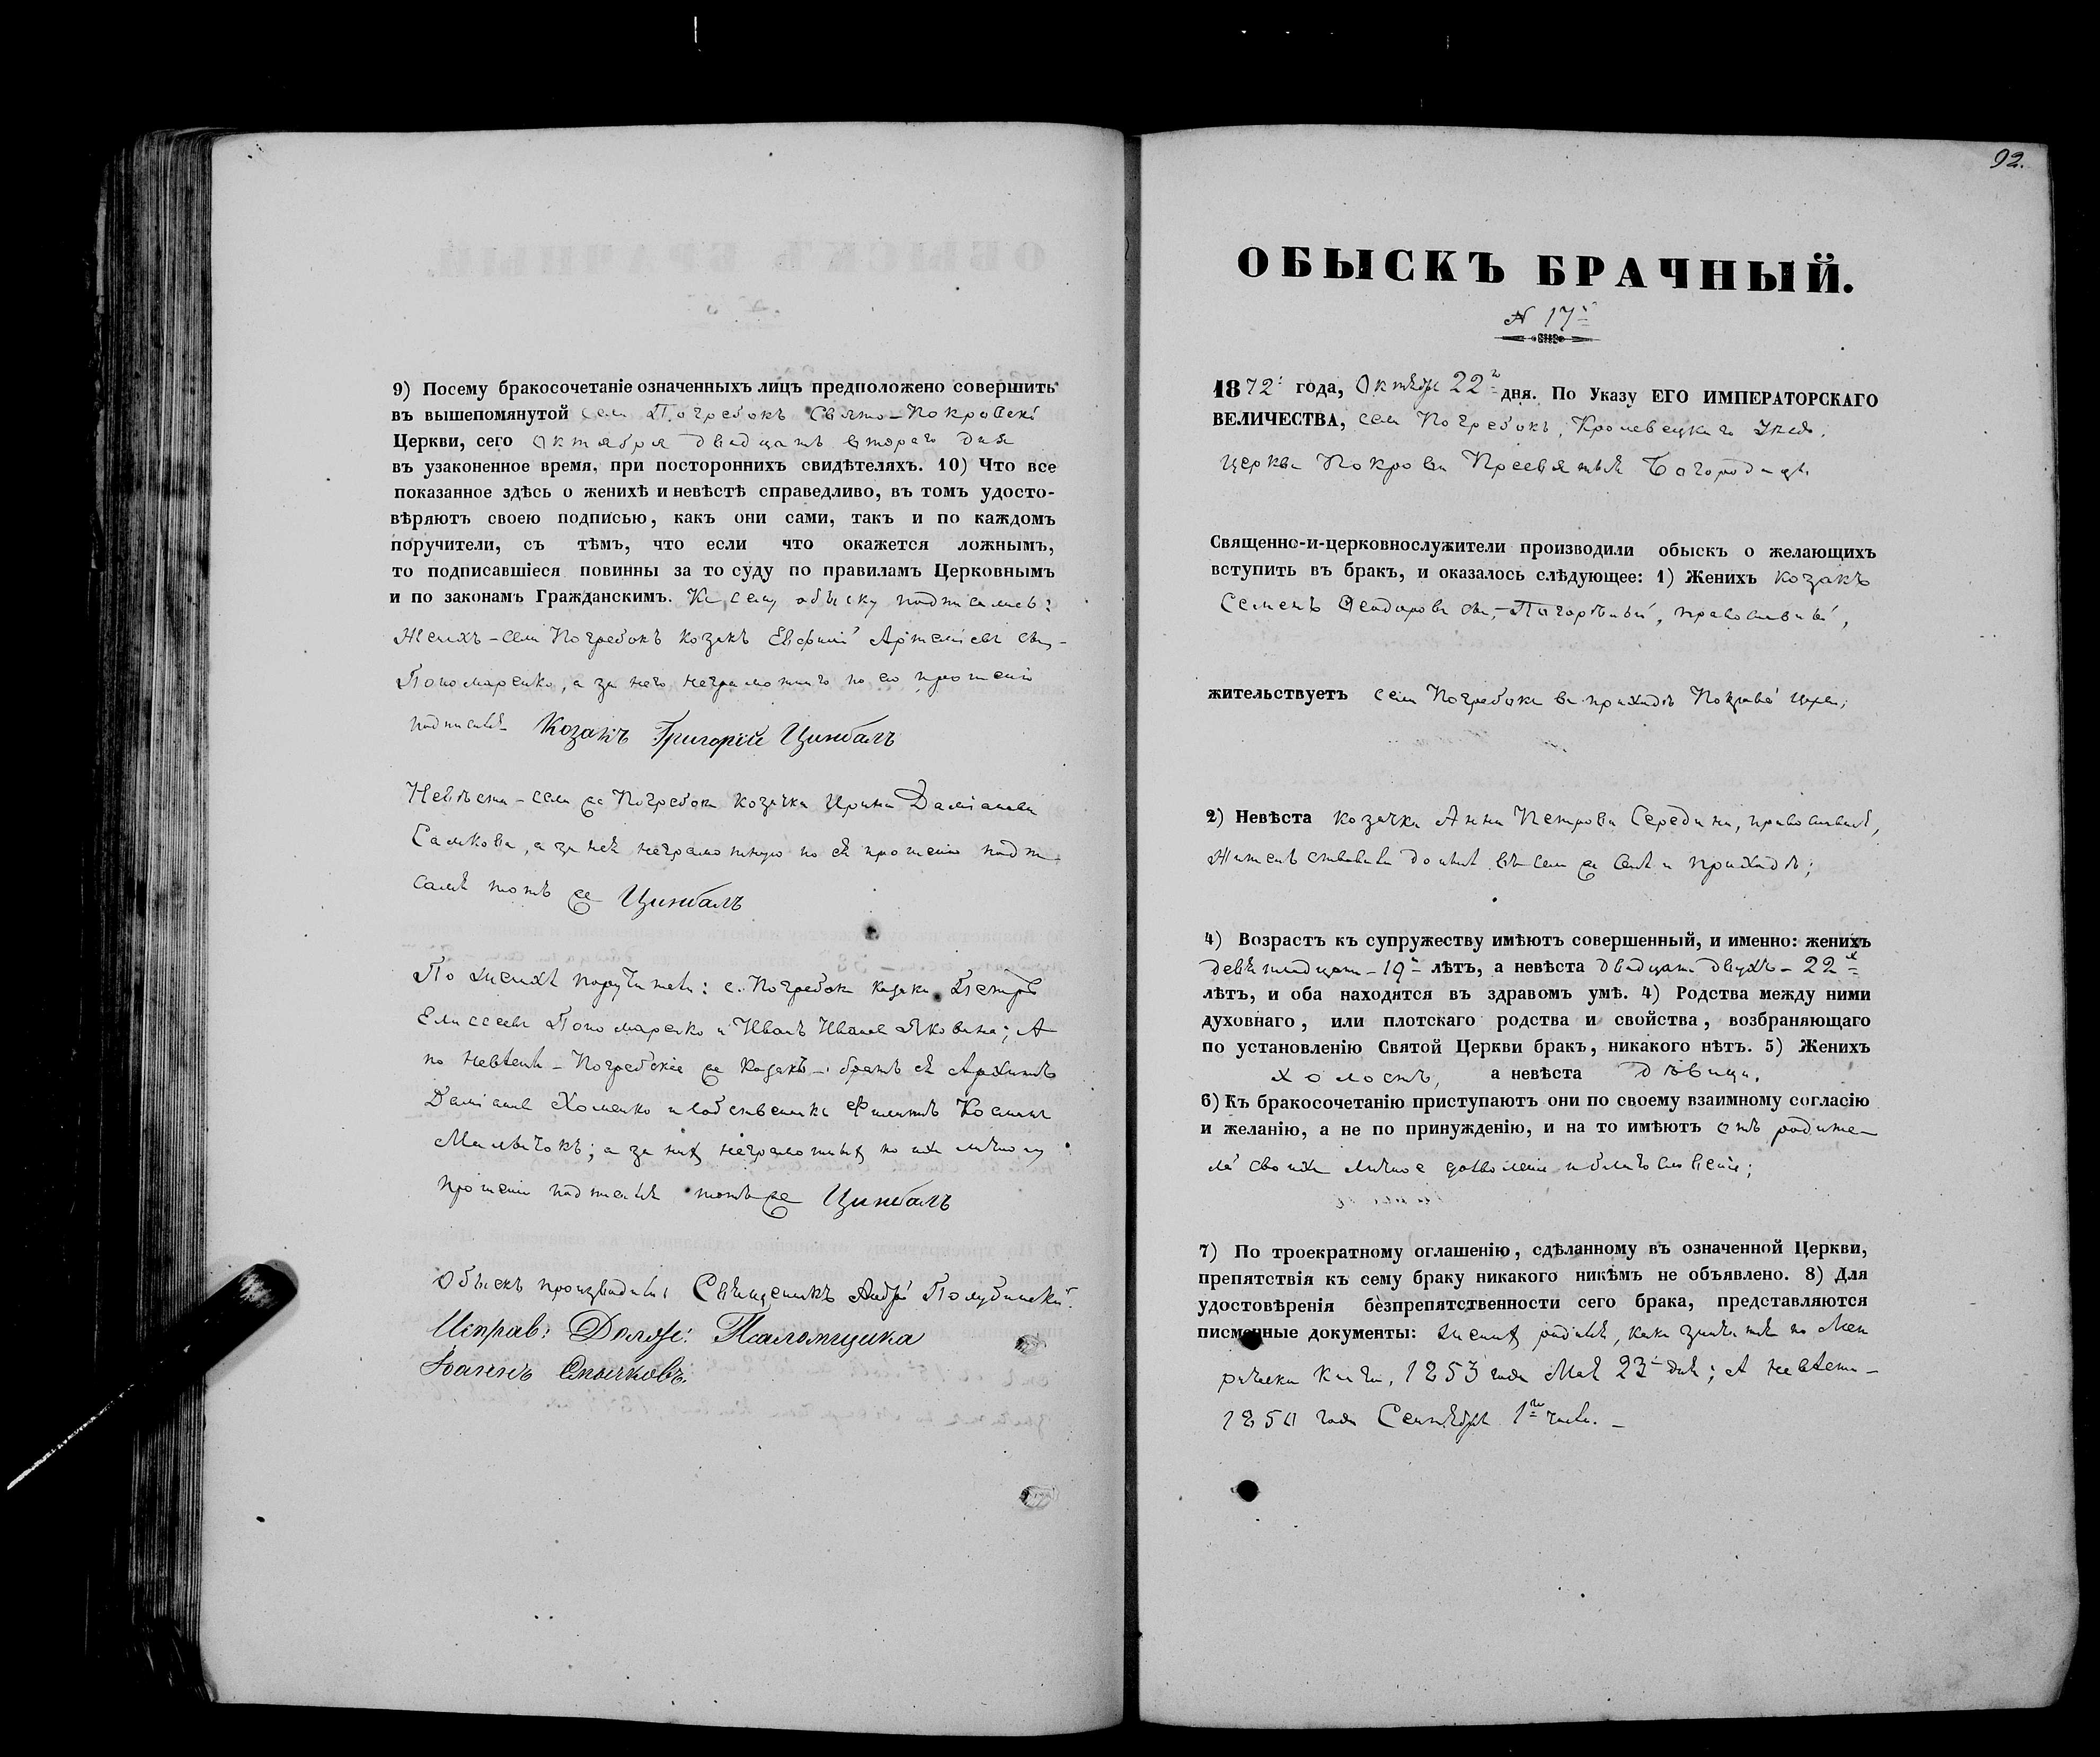 9) Посему бракосочетаніе означенныхъ лицъ предположено совершить
въ вышепомянутой села Погребокъ Свято-Покровской
Церкви, сего Октября двадцать втораго дня
въ узаконенное время, при постороннихъ свидѣтеляхъ. 10) Что все
показанное здѣсь о женихѣ и невѣстѣ справедливо, въ томъ удосто-
вѣряютъ своею подписью, какъ они сами, такъ и по каждомъ
поручители, съ тѣмъ, что если что окажется ложнымъ,
то подписавшіеся повинны за то суду по правиламъ Церковнымъ
и по законамъ Гражданскимъ. Къ сему обыску подписались:
Женихъ - села Погребокъ козакъ Евфимій Артеміевъ сынъ
Пономаренко, а за него неграмотнаго по его прошенію
подписался Козакъ Григорій Цинбалъ
Невѣста - села же Погребокъ козачка Ирина Даміанова
Самкова, а за неё неграмотную по её прошенію подпи-
сался тотъ же Цинбалъ
По женихѣ поручители: с. Погребокъ козаки Петръ
Елисеевъ Пономаренко и Иванъ Ивановъ Яковина; А
по невѣстѣ - Погребскіе же Козакъ - братъ её Архипъ
Даміановъ Хоменко и собственникъ Филиппъ Косминъ
Мальчокъ; а за нихъ неграмотныхъ по ихъ личному
прошенію подписался тотъ же Цинбалъ
Обыскъ производили: Священникъ Андрей Полубинскій.
Исправ: Должн: Псаломщика
Іоаннъ
92.
ОБЫСКЪ БРАЧНЫЙ.
№ 17й
1872: года, Октября 22го дня. По Указу ЕГО ИМПЕРАТОРСКАГО
ВЕЛИЧЕСТВА, села Погребокъ, Кролевецкаго Уѣзда,
церкви Покрова Пресвятыя Богородицы
Священно-и-церковнослужители производили обыскъ о желающихъ
вступить въ бракъ, и оказалось слѣдующее: 1) Женихъ козакъ
Семенъ Ѳеодоровъ сынъ Погорѣлый, православный,
жительствуетъ села Погребокъ въ приходѣ Покровской церкви;
2) Невѣста козачка Анна Петрова Середина, православная,
жительствовала донынѣ въ семъ же селѣ и приходѣ;
4) Возрастъ къ супружеству имѣютъ совершенный, и именно: женихъ
девятнадцати - 19ть лѣтъ, а невѣста двадцати двухъ - 22х
лѣтъ, и оба находятся въ здравомъ умѣ. 4) Родства между ними
духовнаго, или плотскаго родства и свойства, возбраняющаго
по установленію Святой Церкви бракъ, никакого нѣтъ. 5) Женихъ
холостъ, а невѣста дѣвица.
6) Къ бракосочетанію приступаютъ они по своему взаимному согласію
и желанію, а не по принужденію, и на то имѣютъ отъ родите-
лей своихъ личное дозволеніе и благословеніе;
7) По троекратному оглашенію, сдѣланному въ означенной Церкви,
препятствія къ сему браку никакого никѣмъ не объявлено. 8) Для
удостовѣренія безпрепятственности сего брака, представляются
писменные документы: женихъ родился, какъ значится по Мет
рической книгѣ, 1853 года Мая 23го дня; А невѣста -
1850 года Сентября 1го числа. -